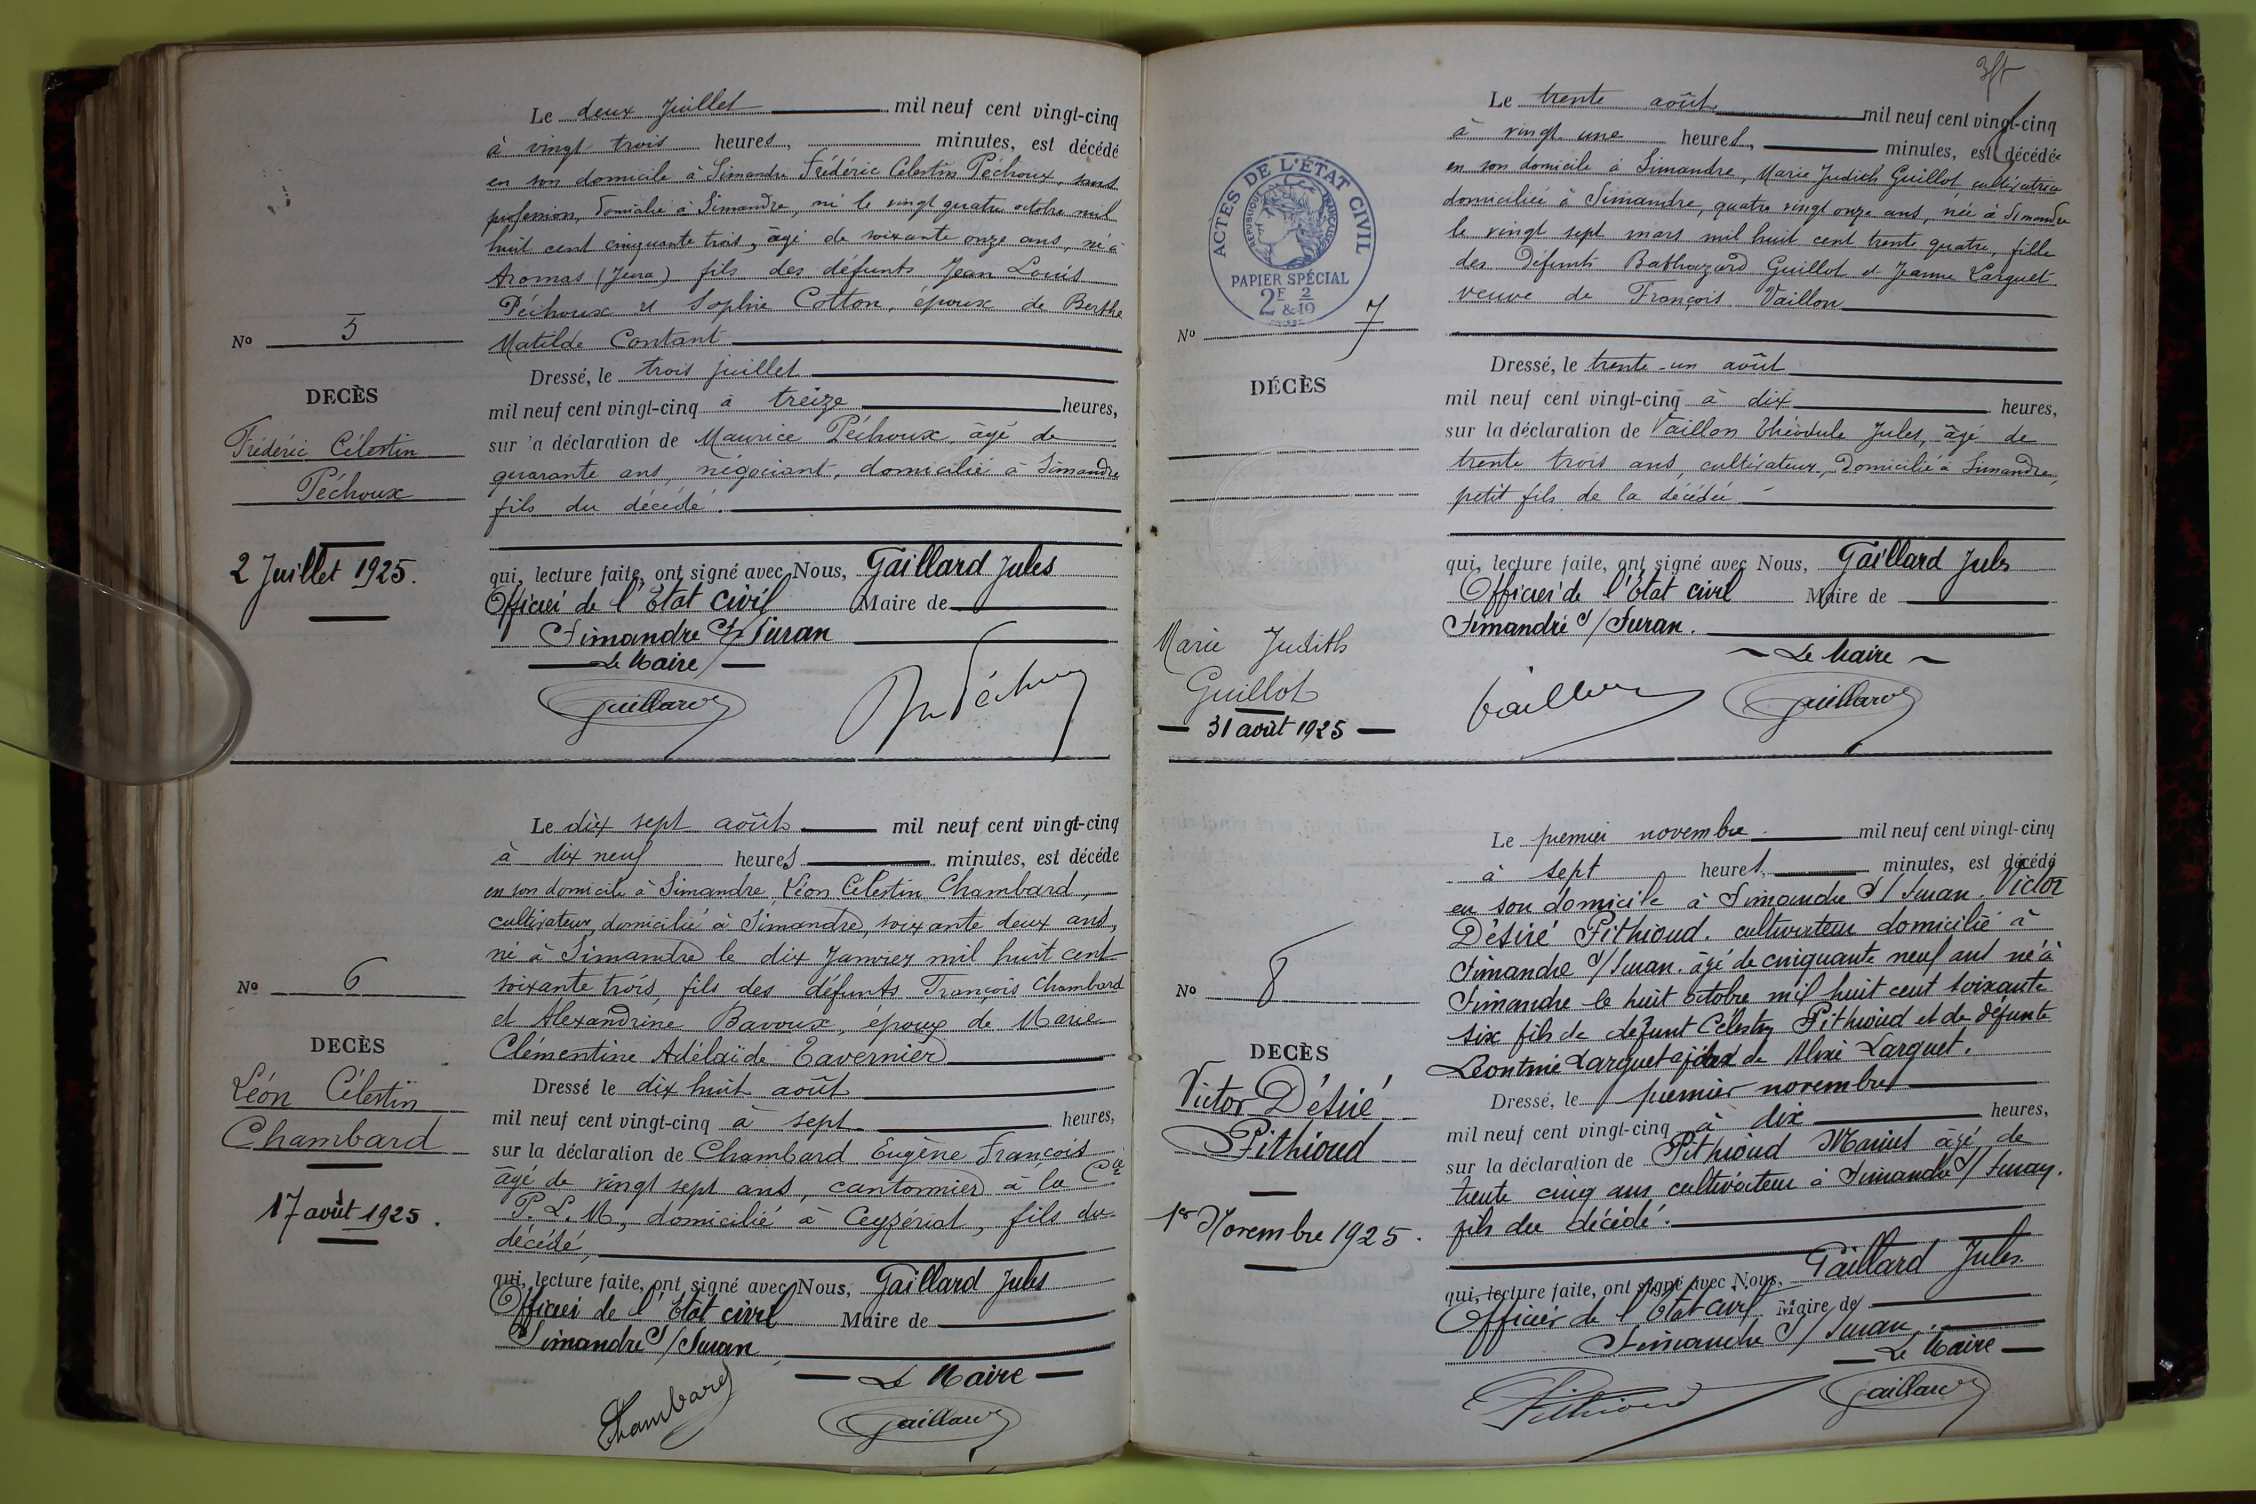 Le deux Juillet mil neuf cent vingt-cinq
à vingt trois heures, minutes, est décédé
en son domicile à Simandre Frédéric Célestin Péchoux, sans
profession, domicilié à Simandre, né le vingt quatre octobre mil
huit cent cinquante trois, âgé de soixante onze ans, né à
Aromas (Jura) fils des défunts Jean Louis
Péchoux et Sophie Cotton, époux de Berthe
Matilde Contant
No 5
DECÈS
Frédéric Célestin
Péchoux
2 Juillet 1925.
Dressé, le trois juillet
mil neuf cent vingt-cinq à treize heures,
sur 'a déclaration de Maurice Péchoux, âgé de
quarante ans, négociant, domicilié à Simandre
fils du décédé.
qui, lecture faite, ont signé avec Nous, Gaillard Jules
Officier de l'Etat civil Maire de
Simandre s/ Suran
Le Maire
Gaillard
Péchoux
Le dix sept août mil neuf cent vingt-cinq
à dix neuf heures minutes, est décédé
en son domicile à Simandre, Léon Célestin Chambard,
cultivateur, domicilié à Simandre, soixante deux ans,
né à Simandre le dix Janvier mil huit cent
soixante trois, fils des défunts François Chambard
et Alexandrine Bavoux, époux de Marie
Clémentine Adélaïde Tavernier
No 6
DECÈS
Léon Célestin
Chambard
17 août 1925.
Dressé le dix huit août
mil neuf cent vingt-cinq à sept heures,
sur la déclaration de Chambard Eugène François
âgé de vingt sept ans, cantonnier à la Cie
P. L. M, domicilié à Ceyzériat, fils du
décédé,
qui, lecture faite, ont signé avec Nous, Gaillard Jules
Officier de l'Etat civil Maire de
Simandre s/ Suran
Le Maire
Chambard
Gaillard
ACTES DE L'ÉTAT CIVIL
RÉPUBLIQUE FRANÇAISE
PAPIER SPÉCIAL
2F & 2/10
Le trente août mil neuf cent vingt-cinq
à vingt une heures, minutes, est décédée
en son domicile à Simandre, Marie Judith Guillot cultivatrice
domiciliée à Simandre, quatre vingt onze ans, née à Simandre
le vingt sept mars mil huit cent trente quatre, fille
des défunts Balthazard Guillot et Jeanne Larguet
veuve de François Vaillon
No 7
DÉCÈS
Marie Judith
Guillot
31 août 1925
Dressé, le trente-un août
mil neuf cent vingt-cinq à dix heures,
sur la déclaration de Vaillon Théodule Jules, âgé de
trente trois ans, cultivateur, domicilié à Simandre,
petit fils de la décédée
qui, lecture faite, ont signé avec Nous, Gaillard Jules
Officier de l'Etat civil Maire de
Simandre s/ Suran.
Le Maire
Vaillon
Gaillard
Le premier novembre mil neuf cent vingt-cinq
à sept heures, minutes, est décédé
en son domicile à Simandre s/ Suran. Victor
Désiré Pithioud. cultivateur domicilié à
Simandre s/ Suran. âgé de cinquante neuf ans né à
Simandre le huit octobre mil huit cent soixante
six fils de défunt Célestin Pithioud et de défunte
Léontine Larguet époux de Larguet.
No 8
DECÈS
Victor Désiré
Pithioud
1er Novembre 1925.
Dressé, le premier novembre
mil neuf cent vingt-cinq à dix heures,
sur la déclaration de Pithioud Marius âgé de
trente cinq ans cultivateur à Simandre s/ Suran.
fils du décédé.
qui, lecture faite, ont signé avec Nous, Gaillard Jules
Officier de l'Etat civil Maire de
Simandre s/ Suran.
Le Maire
Pithioud
Gaillard